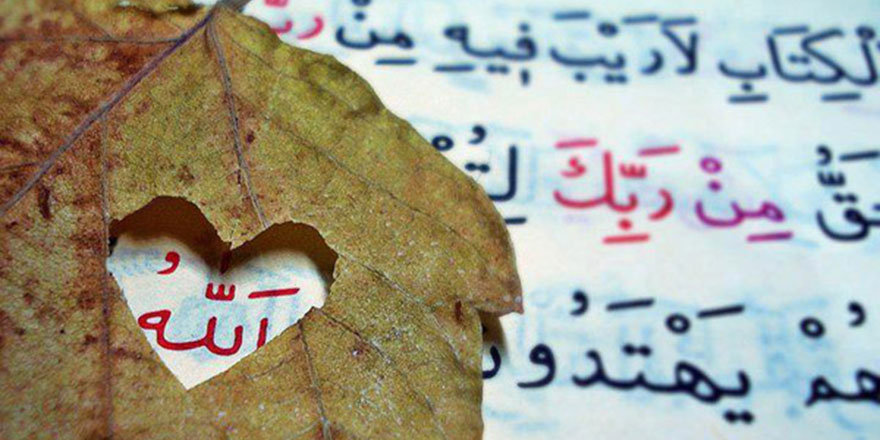 لْكِتَابِ لَارَيْبَ فٖيهِ مِنْ رَبِّ
حَقُّ مِنْ رَبِّكَ لِتُنْ
هُمْ يَهْتَدُونَ
اَللّٰهُ